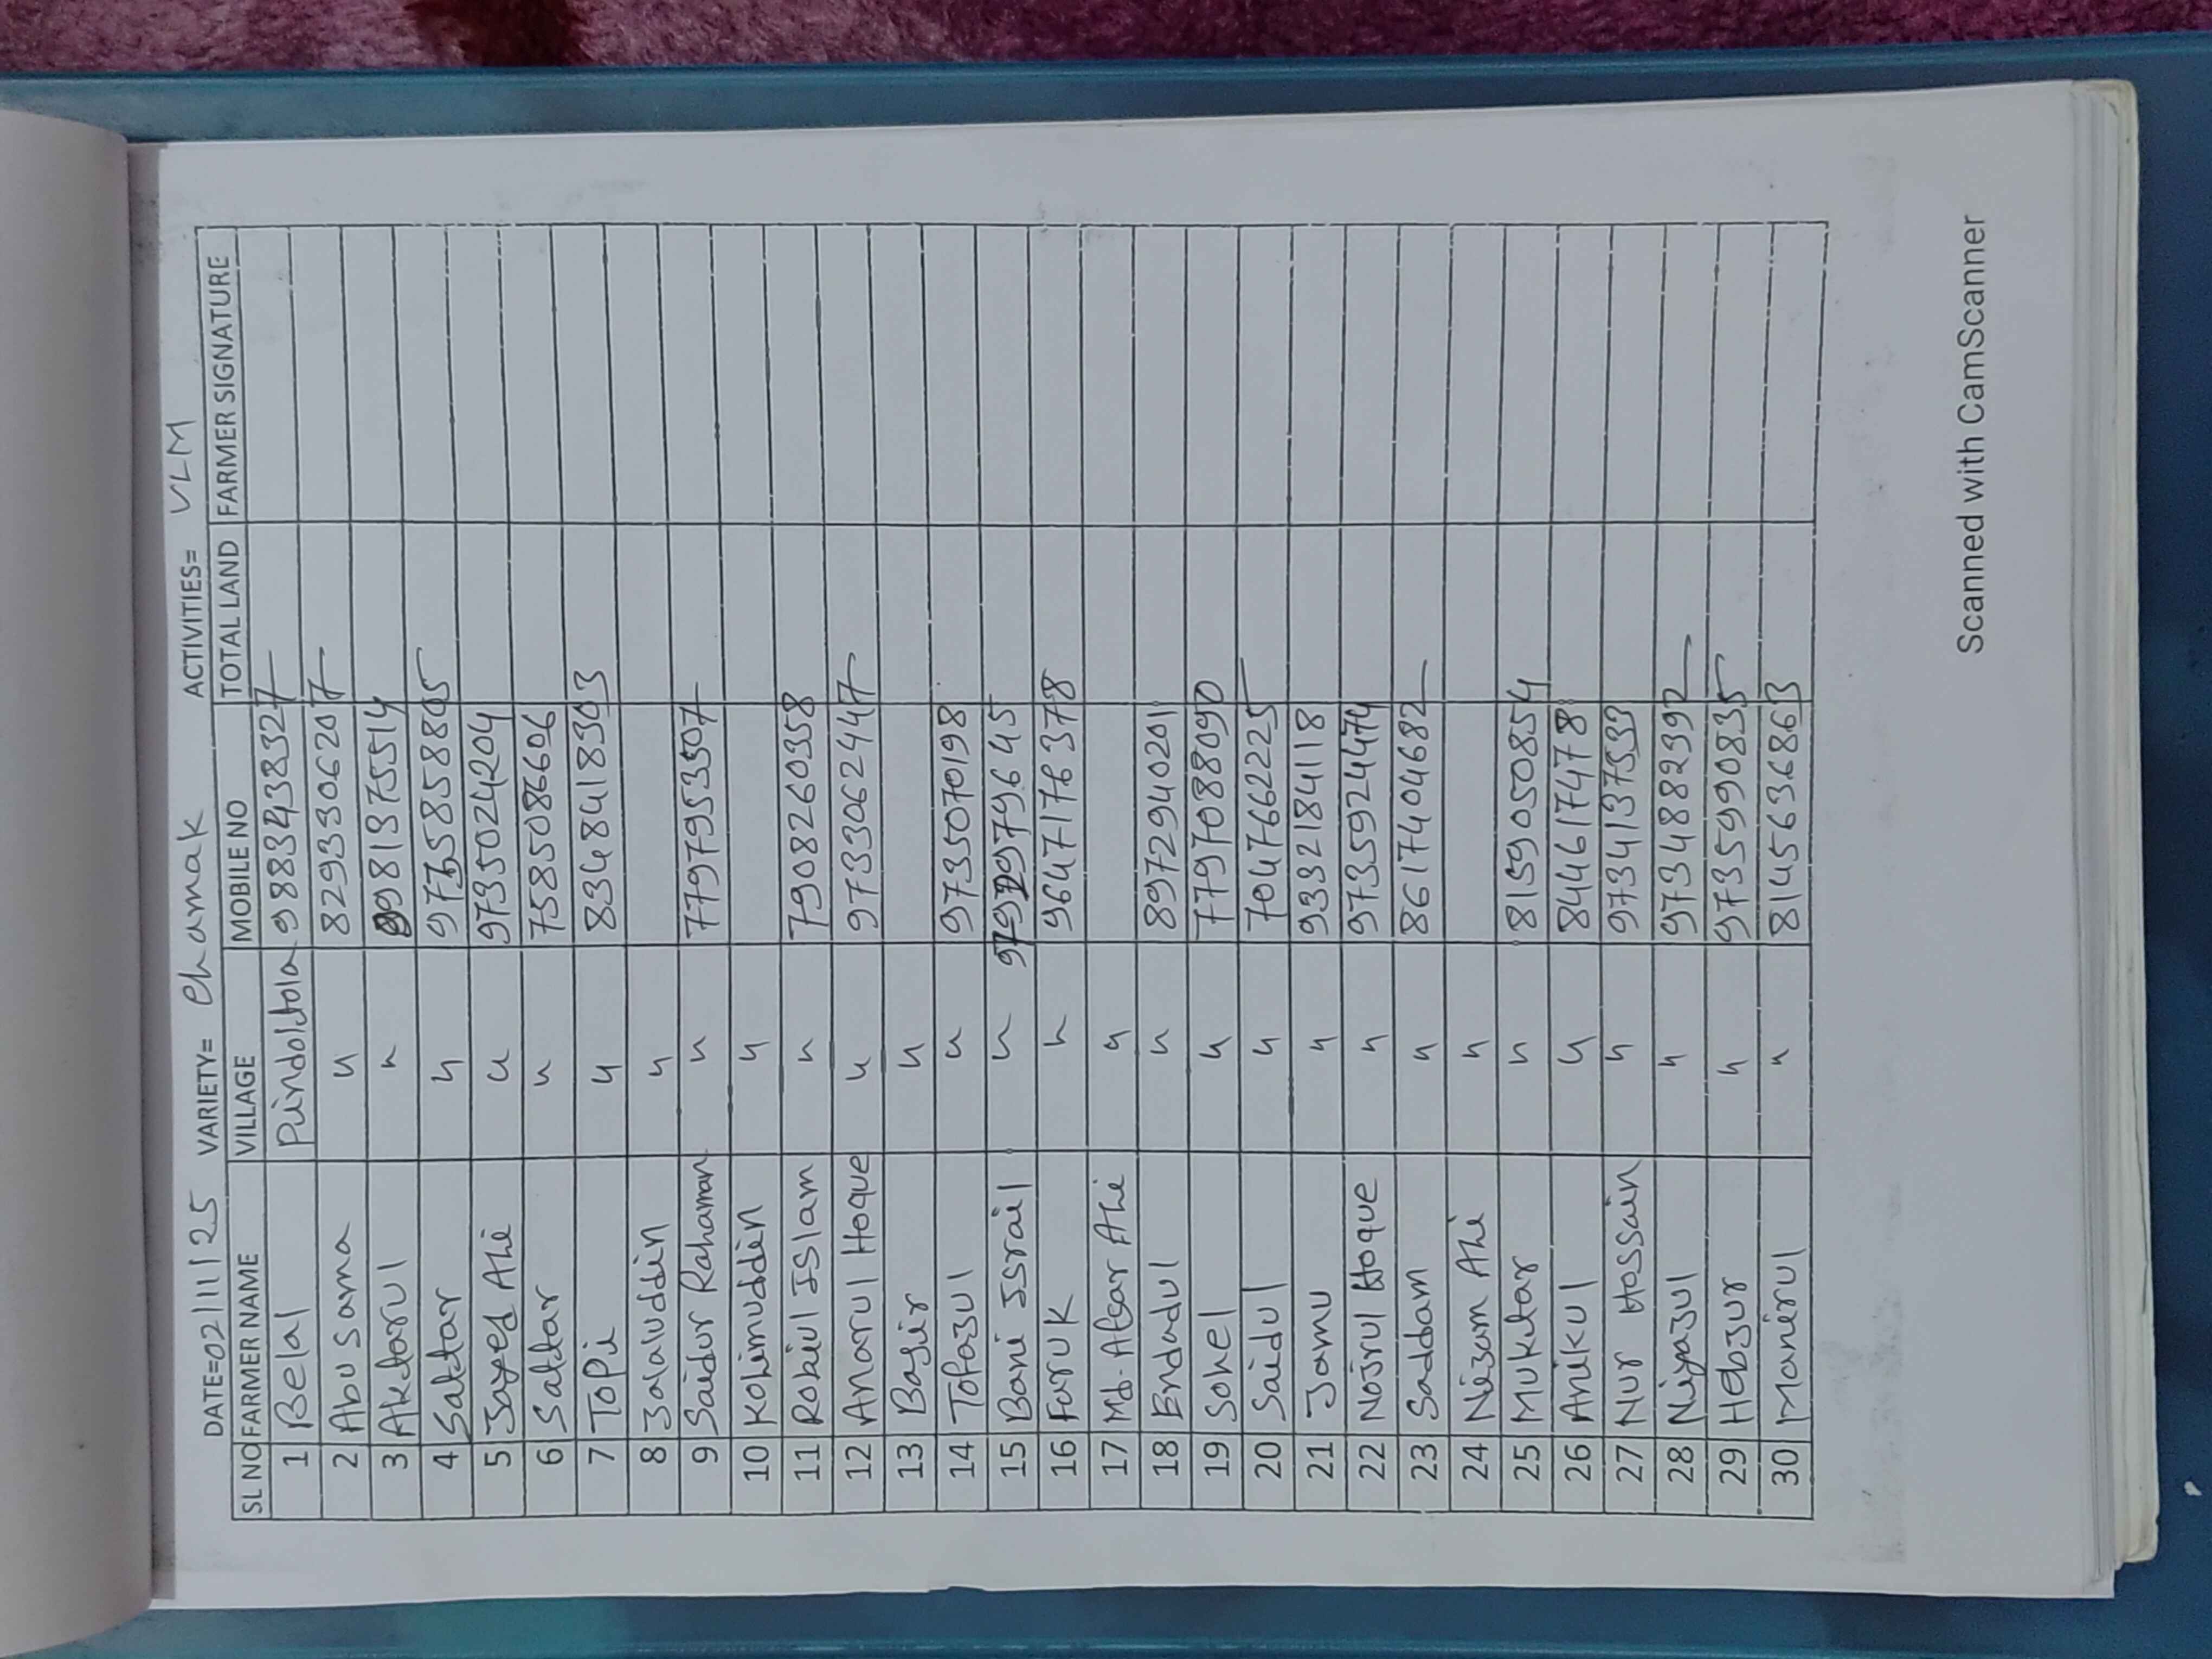 DATE=02/11/25 VARIETY= Chamak ACTIVITIES= VLM
SL NO FARMER NAME VILLAGE MOBILE NO TOTAL LAND FARMER SIGNATURE
1 Belal Pindoltola 9883438327
2 Abu Sama " 8293306207
3 Aktarul " 981375514
4 Sattar " 9775858805
5 Jayed Ali " 9735024204
6 Sattar " 7585086606
7 Topi " 8348418303
8 Jalaluddin "
9 Saidur Rahaman " 7797953507
10 Kohimuddin "
11 Robiul Islam " 7908260358
12 Anarul Hoque " 9733062447
13 Basir "
14 Tofazul " 9735070198
15 Bani Israil " 9679645
16 Faruk " 9647176378
17 Md. Afsar Ali "
18 Endadul " 8972940201
19 Sohel " 7797088090
20 Saidul " 7047662225
21 Jamu " 9332184118
22 Nojrul Hoque " 9735924474
23 Saddam " 8617404682
24 Nizam Ali "
25 Muktar " 8159050854
26 Anikul " 8446174778
27 Nur Hossain " 9734137533
28 Niyajul " 9734882992
29 Hebjur " 9735990835
30 Manirul " 8145636863
Scanned with CamScanner